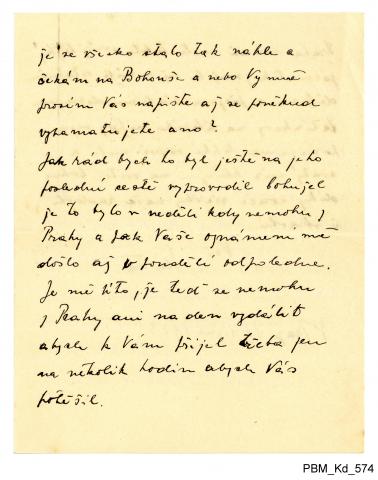 že se všecko stalo tak náhle a
čekám na Bohouše a nebo Vy mně
prosím Vás napište až se poněkud
vzpamatujete ano?
Jak rád bych ho byl ještě na jeho
poslední cestě vyprovodil bohužel
je to bylo v neděli kdy nemohu z
Prahy a pak Vaše oznámení mě
došlo až v pondělí odpoledne.
Je mě líto, že teď se nemohu
z Prahy ani na den vzdálit
abych k Vám přijel třeba jen
na několik hodin abych Vás
potěšil.
PBM_Kd_574